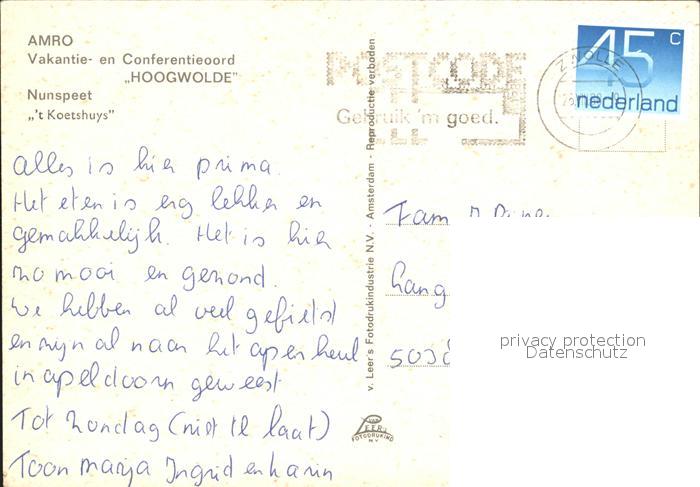 AMRO
Vakantie- en Conferentieoord
„HOOGWOLDE"
Nunspeet
„'t Koetshuys"
POSTCODE
Gebruik 'm goed.
ZWOLLE
45 c
nederland
alles is hier prima.
Het eten is erg lekker en
gemakkelijk. Het is hier
zo mooi en gezond.
We hebben al veel gefietst
en zijn al naar het apenheul
in apeldoorn geweest
Tot Zondag (niet te laat)
Toon Marja Ingrid en karin
v. Leer's Fotodrukindustrie N.V. - Amsterdam - Reproductie verboden
VAN
LEER'S
FOTODRUKIND
N.V.
Fam
Lang
privacy protection
Datenschutz